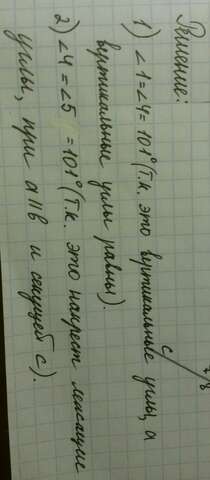 Решение:
1) ∠1=∠4=101° (Т.к. это вуртикальные углы, а
вуртикальные углы равны).
2) ∠4=∠5 =101° (Т.к. это накрест лежащие
углы, при a||в и секущей с).
с